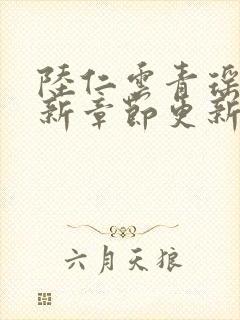 陸仁雲青瑤
新章節更新
六月天狼